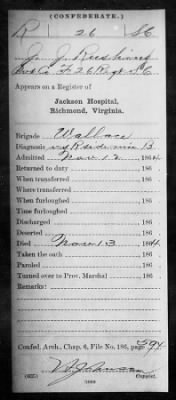 (CONFEDERATE.)
R 26 S C
J. J.
Co. F, 26 Reg't S C
Appears on a Register of
Jackson Hospital,
Richmond, Virginia.
Brigade Wallace
Diagnosis
Admitted Nov 12 , 1864
Returned to duty , 186
When transferred , 186
Where transferred
When furloughed , 186
Time furloughed
Discharged , 186
Deserted , 186
Died Nov 13 , 1864.
Took the oath , 186
Paroled , 186
Turned over to Prov. Marshal , 186
Remarks:
Confed. Arch., Chap. 6, File No. 186, page 294
(635) Copyist.